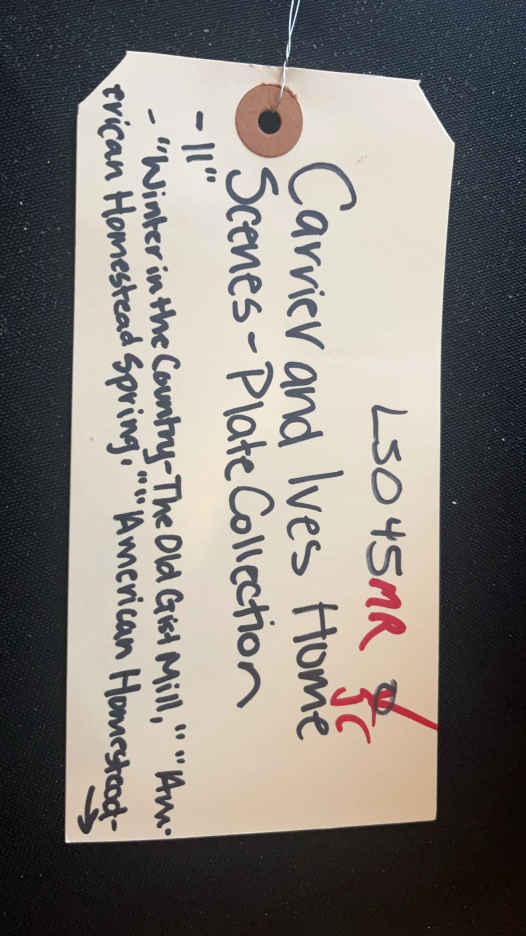 LSO45MR
JC
Carrier and Ives Home
Scenes - Plate Collection
- 11"
- "Winter in the Country - The Old Grist Mill," "Am-
erican Homestead Spring," "American Homestead- →